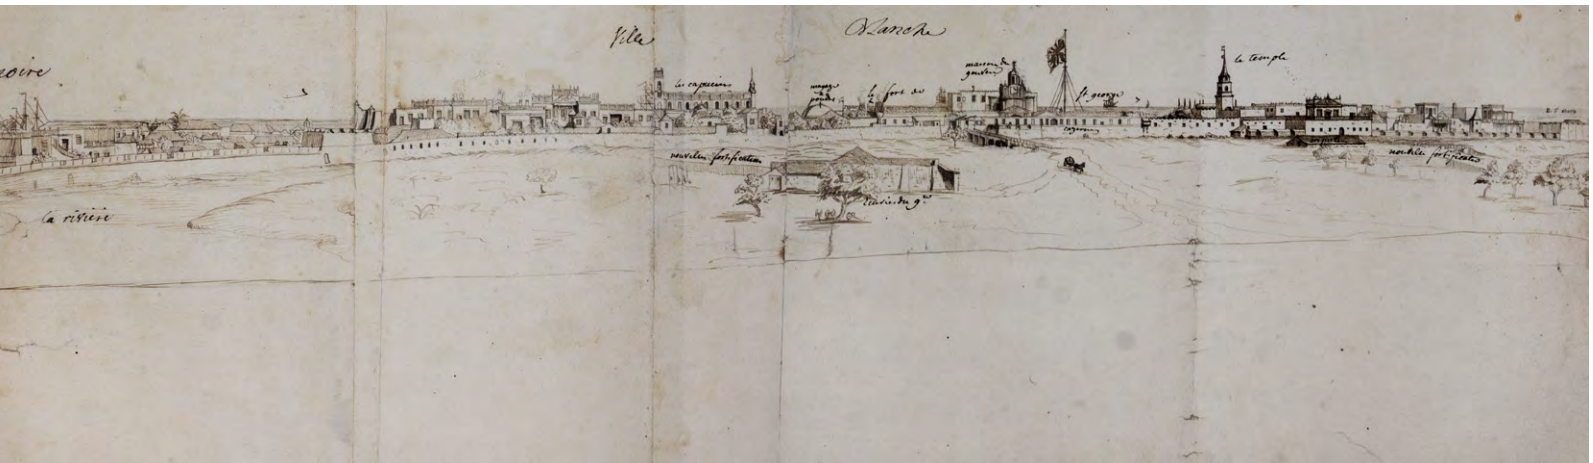 Ville Blanche
noire
les capucins
magaz
a
poudre
le fort de
maison du
gouver
St george
le temple
cazernes
nouvelles fortification
nouvelles fortificatio
la rivière